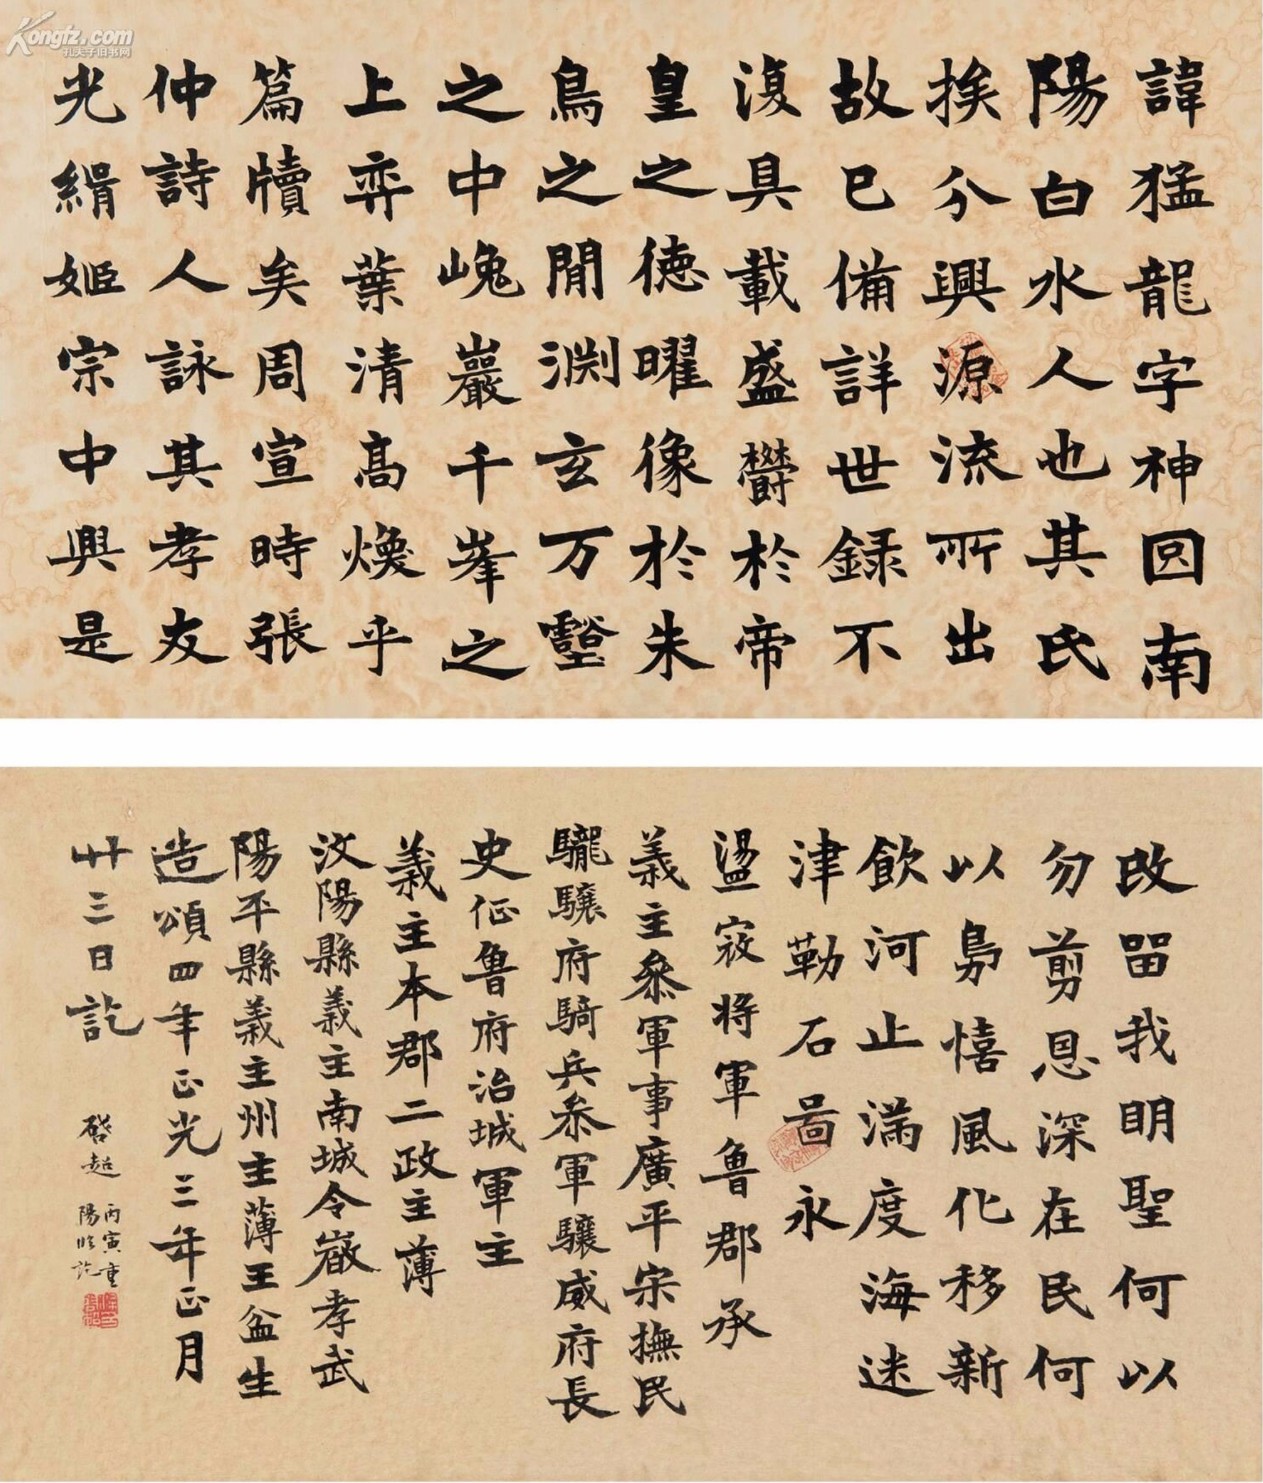 Kongfz.com
孔夫子旧书网
諱猛龍字神囧南
陽白水人也其氏
挨分興源流所出
故已備詳世録不
復具載盛欝於帝
皇之德曜像於朱
鳥之閒渊玄万壑
之中巉巖千峯之
上弈葉清高煥乎
篇牘矣周宣時張
仲詩人詠其孝友
光緝姬宗中興是
改留我明聖何以
勿剪恩深在民何
以鳥憘風化移新
飲河止滿度海迷
津勒石啚永
盪寇将軍魯郡承
義主叅軍事廣平宗撫民
驡驤府騎兵叅軍驤威府長
史征魯府治城軍主
義主本郡二政主薄
汶陽縣義主南城令嚴孝武
陽平縣義主州主薄王盆生
造頌四年正光三年正月
廿三日訖
啓超
丙寅重
陽臨訖